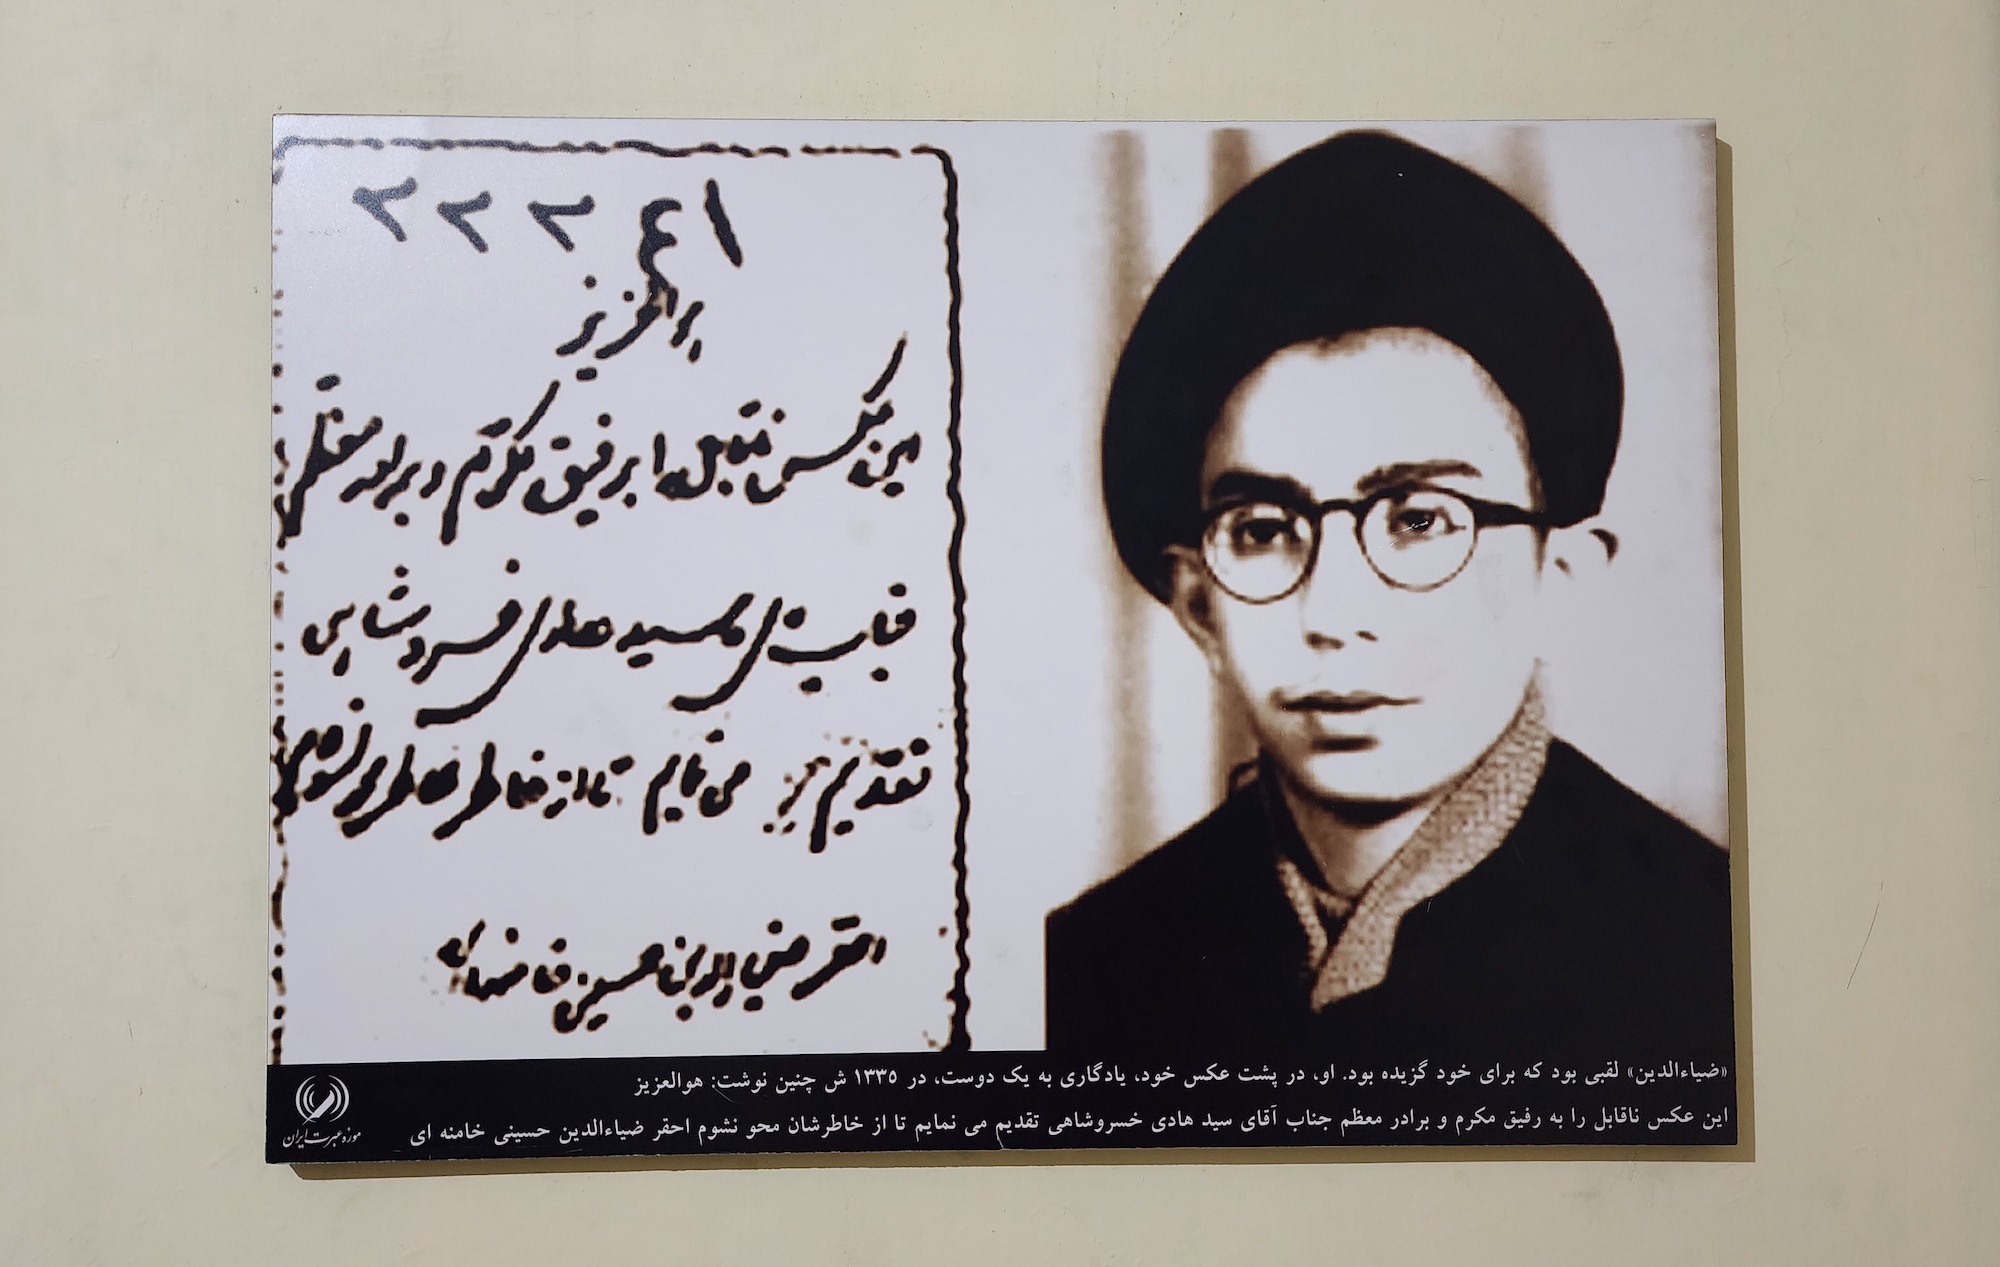 هوالعزیز
این عکس ناقابل را به رفیق مکرم و برادر معظم
جناب آقای سید هادی خسروشاهی
تقدیم می نمایم تا از خاطر خاطرتان محو نشوم
احقر ضیاءالدین حسینی خامنه ای
«ضیاءالدین» لقبی بود که برای خود گزیده بود. او، در پشت عکس خود، یادگاری به یک دوست، در ۱۳۳۵ ش چنین نوشت: هوالعزیز
این عکس ناقابل را به رفیق مکرم و برادر معظم جناب آقای سید هادی خسروشاهی تقدیم می نمایم تا از خاطرشان محو نشوم احقر ضیاءالدین حسینی خامنه ای
موزه عبرت ایران